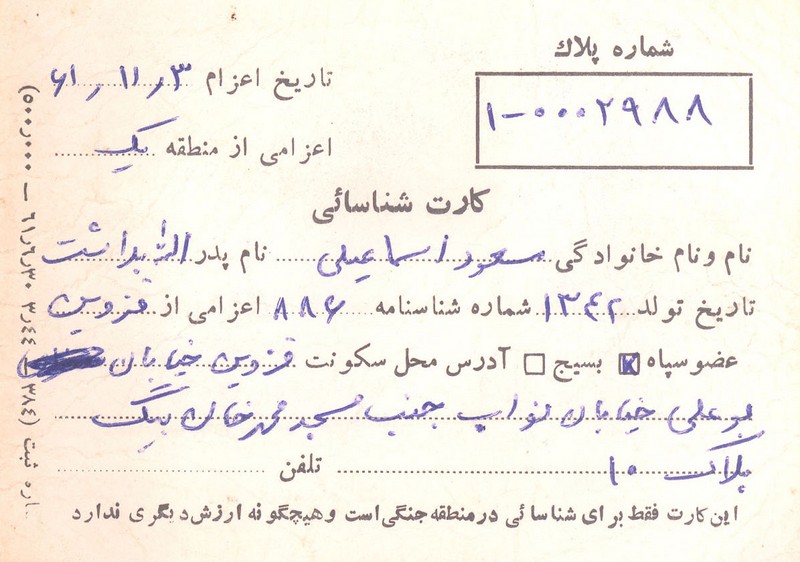 شماره پلاك
۱-۰۰۰۲۹۸۸
تاریخ اعزام ۶۱٫۱۱٫۳
اعزامی از منطقه یک
کارت شناسائی
نام ونام خانوادگی مسعود اسماعیلی نام پدر اله بداشت
تاریخ تولد ۱۳۴۲ شماره شناسنامه ۸۸۶ اعزامی از قزوین
عضو سپاه بسیج آدرس محل سکونت قزوین خیابان
بوعلی خیابان نواب جنب مسجد محمد خان بیگ
پلاک ۱۰ تلفن
این کارت فقط برای شناسائی در منطقه جنگی است و هیچگونه ارزش دیگری ندارد
(۵۰۰٫۰۰۰ – ۶۱٫۶٫۳۰